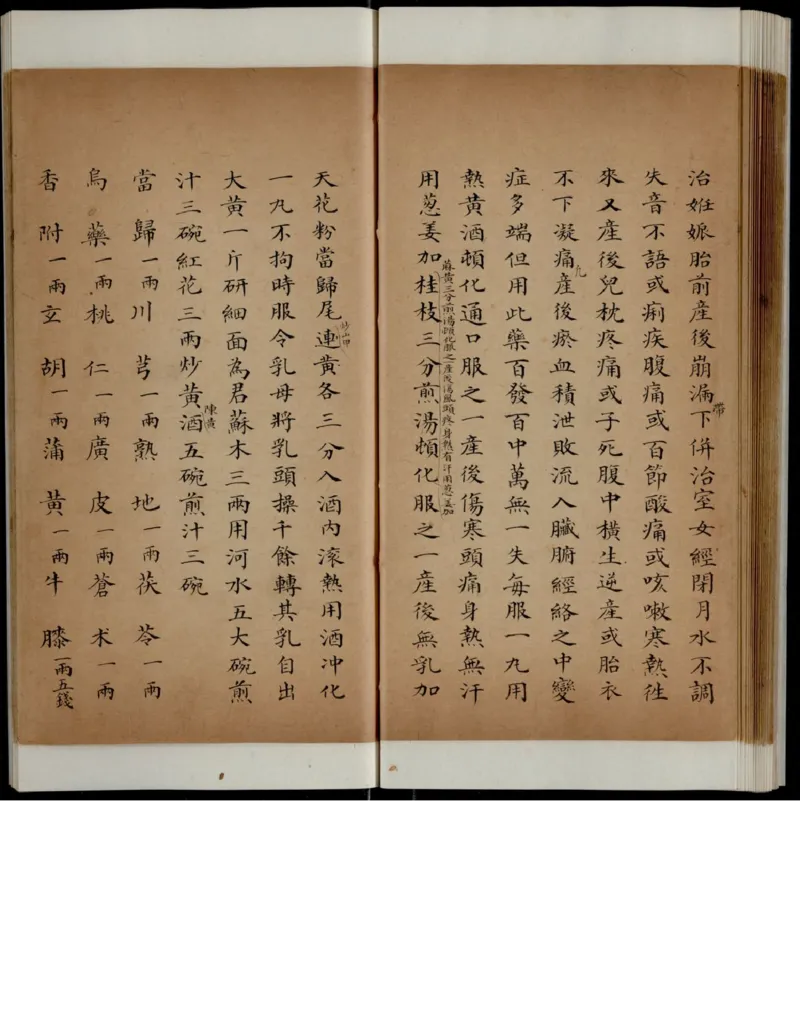 治妊娠胎前產後崩漏下併治室女經閉月水不調
帶
失音不語或痢疾腹痛或百節酸痛或咳嗽寒熱徃
來又產後兒枕疼痛或子死腹中橫生逆產或胎衣
不下凝痛產後瘀血積泄敗流入臟腑經絡之中變
凡
症多端但用此藥百發百中萬無一失每服一九用
熱黃酒頓化通口服之一產後傷寒頭痛身熱無汗
麻黃三分煎湯頓化服之一產後傷風頭疼身熱有汗用葱姜加
用葱姜加桂枝三分煎湯頓化服之一產後無乳加
天花粉當歸尾連黃各三分入酒內滚熱用酒冲化
炒山甲
一九不拘時服令乳母將乳頭操千餘轉其乳自出
大黃一斤研細面為君蘇木三兩用河水五大碗煎
汁三碗紅花三兩炒黃酒五碗煎汁三碗
陳黃
當歸一兩川芎一兩熟地一兩茯苓一兩
烏藥一兩桃仁一兩廣皮一兩蒼术一兩
香附一兩玄胡一兩蒲黃一兩牛膝一兩五錢